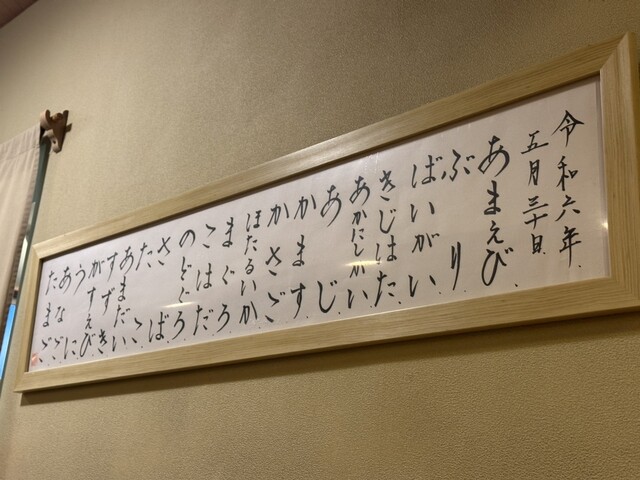 令和六年.
五月三十日.
あまえび.
ぶり.
ばいがい.
きじはた.
あかにしがい.
あじ.
かます.
かさご.
ほたるいか.
まぐろ.
こはだ.
のどぐろ.
さば.
たこ.
あまだい.
すずき.
がすえび.
うに.
あなご.
たまご.